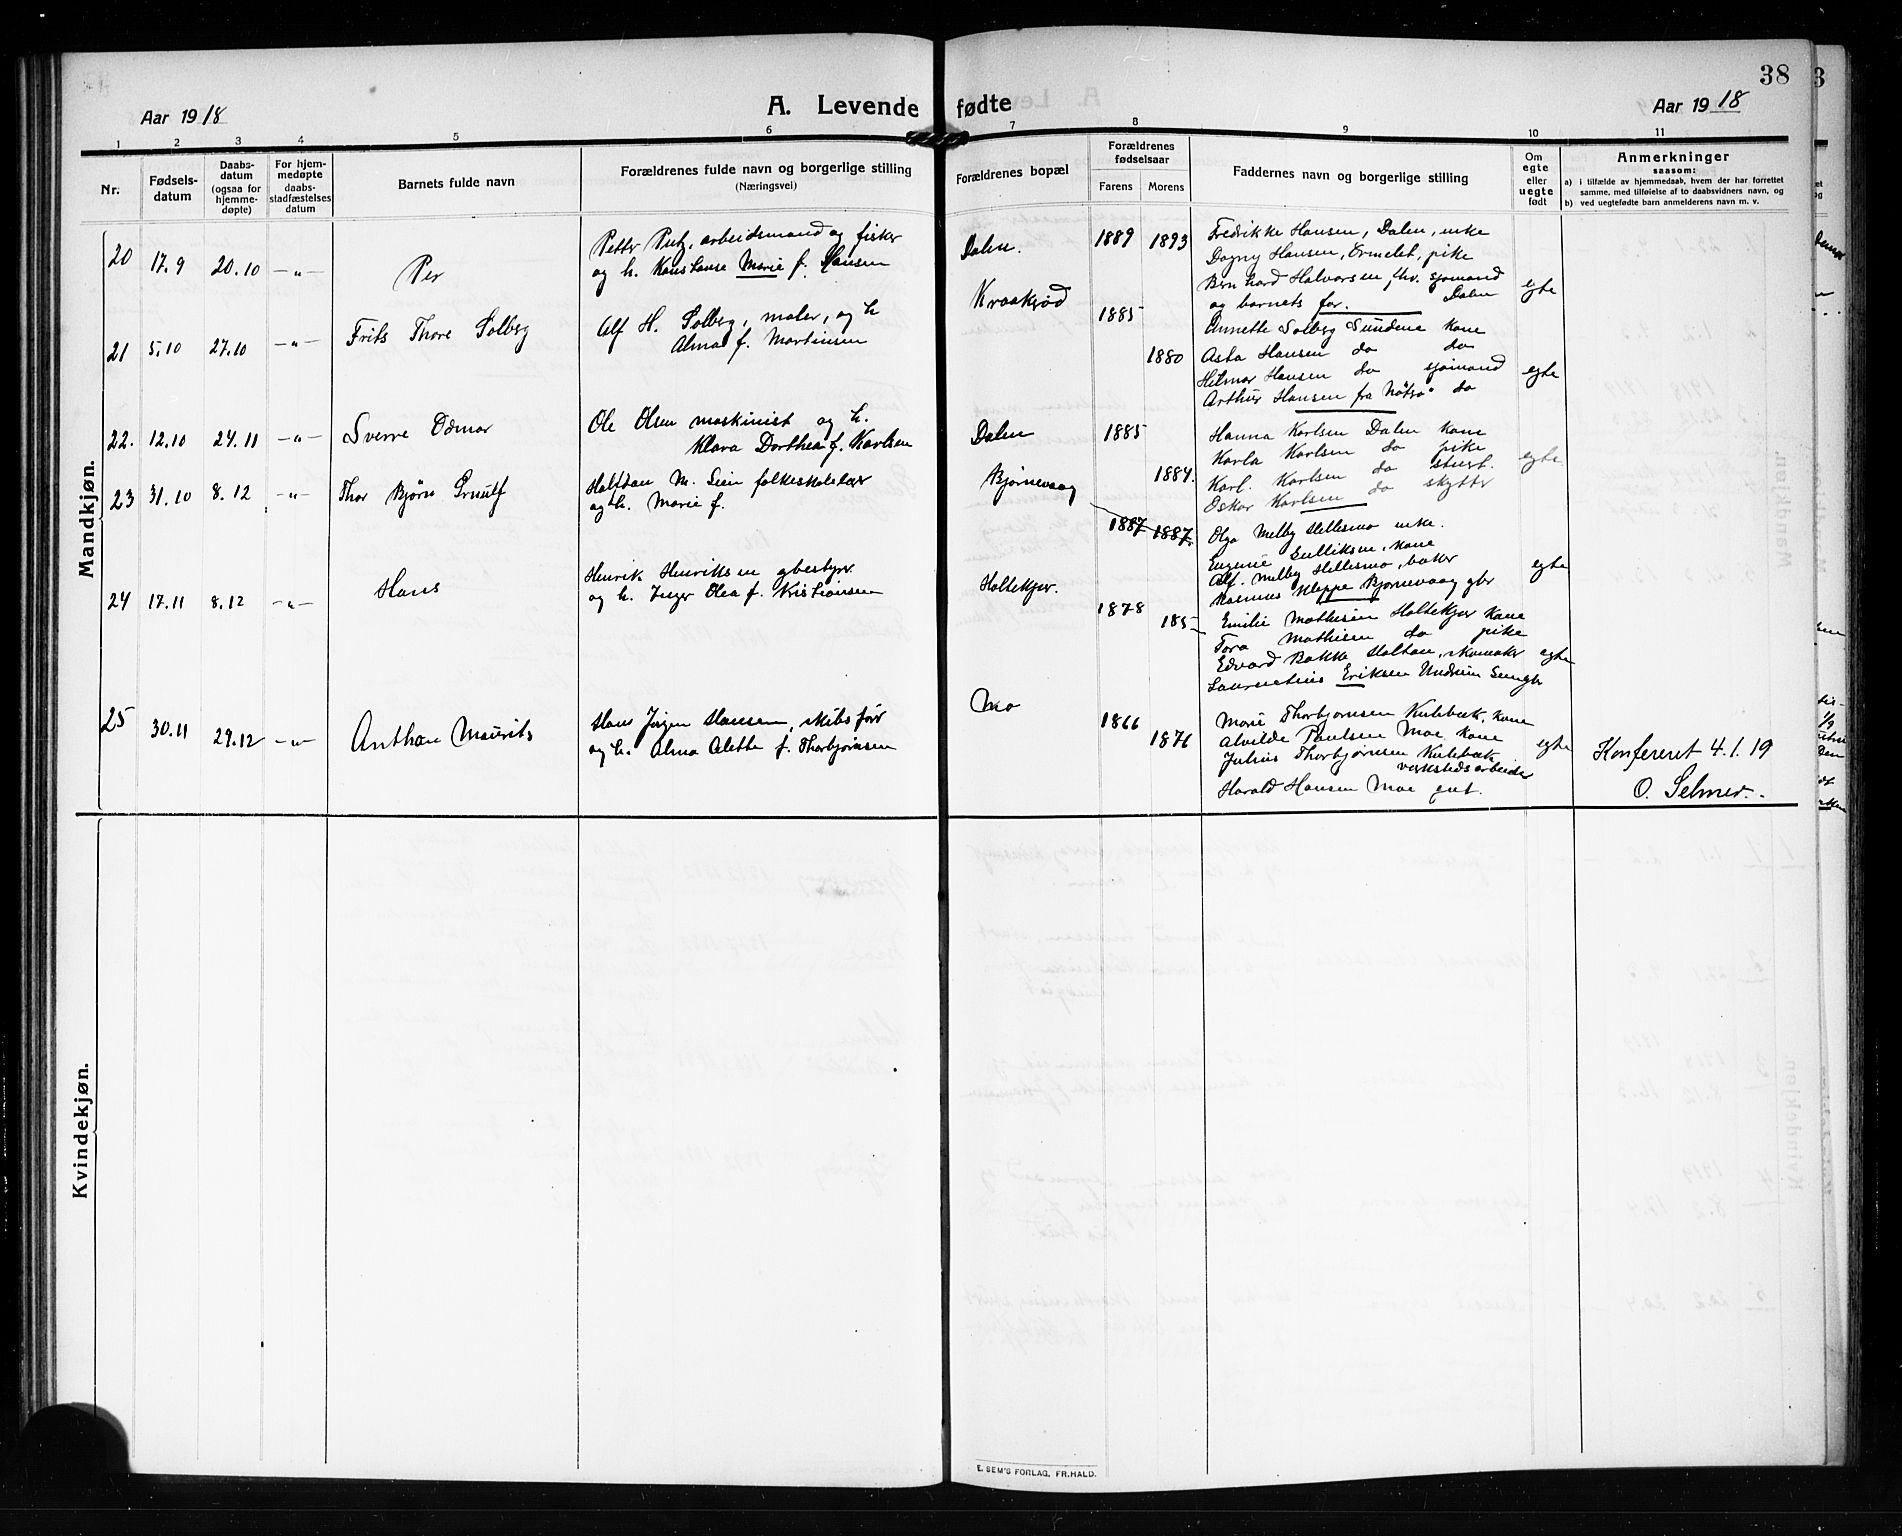 38
Aar 1918
A. Levende fødte
Aar 1918
1 2 3 4 5 6 7 8 9 10 11
Nr.
Fødsels-
datum
Daabs-
datum
(ogsaa for
hjemme-
døpte)
For hjem-
medøpte
daabs-
stadfæstelses
datum
Barnets fulde navn
Forældrenes fulde navn og borgerlige stilling
(Næringsvei)
Forældrenes bopæl
Forældrenes
fødselsaar
Farens Morens
Faddernes navn og borgerlige stilling
Om
egte
eller
uegte
født
Anmerkninger
saasom:
a) i tilfælde av hjemmedaab, hvem der har forrettet
samme, med tilføielse af to daabsvidners navn, og
b) ved uegtefødte barn anmelderens navn m. v.
Mandkjøn.
20 17.9 20.10 -"- Per
Petter Putz, arbeidsmand og fisker
og h. Konstanse Marie f. Hansen
Dalen. 1889 1893
Fredrikke Hansen, Dalen, enke
Dagny Hansen, Ormelet, pike
Bernhard Halvorsen, fhv. sjømand
og barnets far. Dalen
egte
21 5.10 27.10 -"- Frits Thore Solberg
Alf H. Solberg, maler, og h
Alma f. Martinsen
Kraakejød 1885 1880
Annette Solberg Sundene kone
Asta Hansen do do
Hilmar Hansen do sjømand
Arthur Hansen fra Nøtterø do
egte
22. 12.10 24.11 -"- Sverre Odmar
Ole Olsen maskinist og h.
Klara Dorthea f. Karlsen
Dalen 1885 1884.
Hanna Karlsen Dalen kone
Karla Karlsen do pike
Karl. Karlsen do stuert.
Oskar Karlsen do skytter
egte
23 31.10 8.12 -"- Thor Bjørn Grnulf
Halfdan M. Lein folkeskolelærer
og h. Marie f.
Bjørnevaag 1887 1887.
Olga Melby Hellesmo enke.
Eugenie Gulliksen, kone
Alf. Melby Hellesmo, baker
Rasmus Kleppe Bjørnevaag gbr
egte
24 17.11 8.12 -"- Hans
Henrik Henriksen gbestyrer
og h. Inger Olea f. Kristiansen
Holtekjær. 1878 185
Emilie Mathisen Holtekjær kone
Tora Mathisen do pike
Edvard Bakke Holtan, skomaker
Laurentius Eriksen Undrum Semgbr
egte
25 30.11 29.12 -"- Anthon Mauritz
Hans Jørgen Hansen, skibsfører
og h. Alma Alette f. Thorbjørnsen
Mo 1866 1876
Marie Thorbjørnsen Kulebæk, kone
Alvilde Paulsen Moe kone
Julius Thorbjørnsen Kulebæk
verkstedsarbeider
Harald Hansen Moe gut.
egte
Konfereret 4.1.19
O. Selmer.
Kvindekjøn.
E. SEM'S FORLAG, FR.HALD.